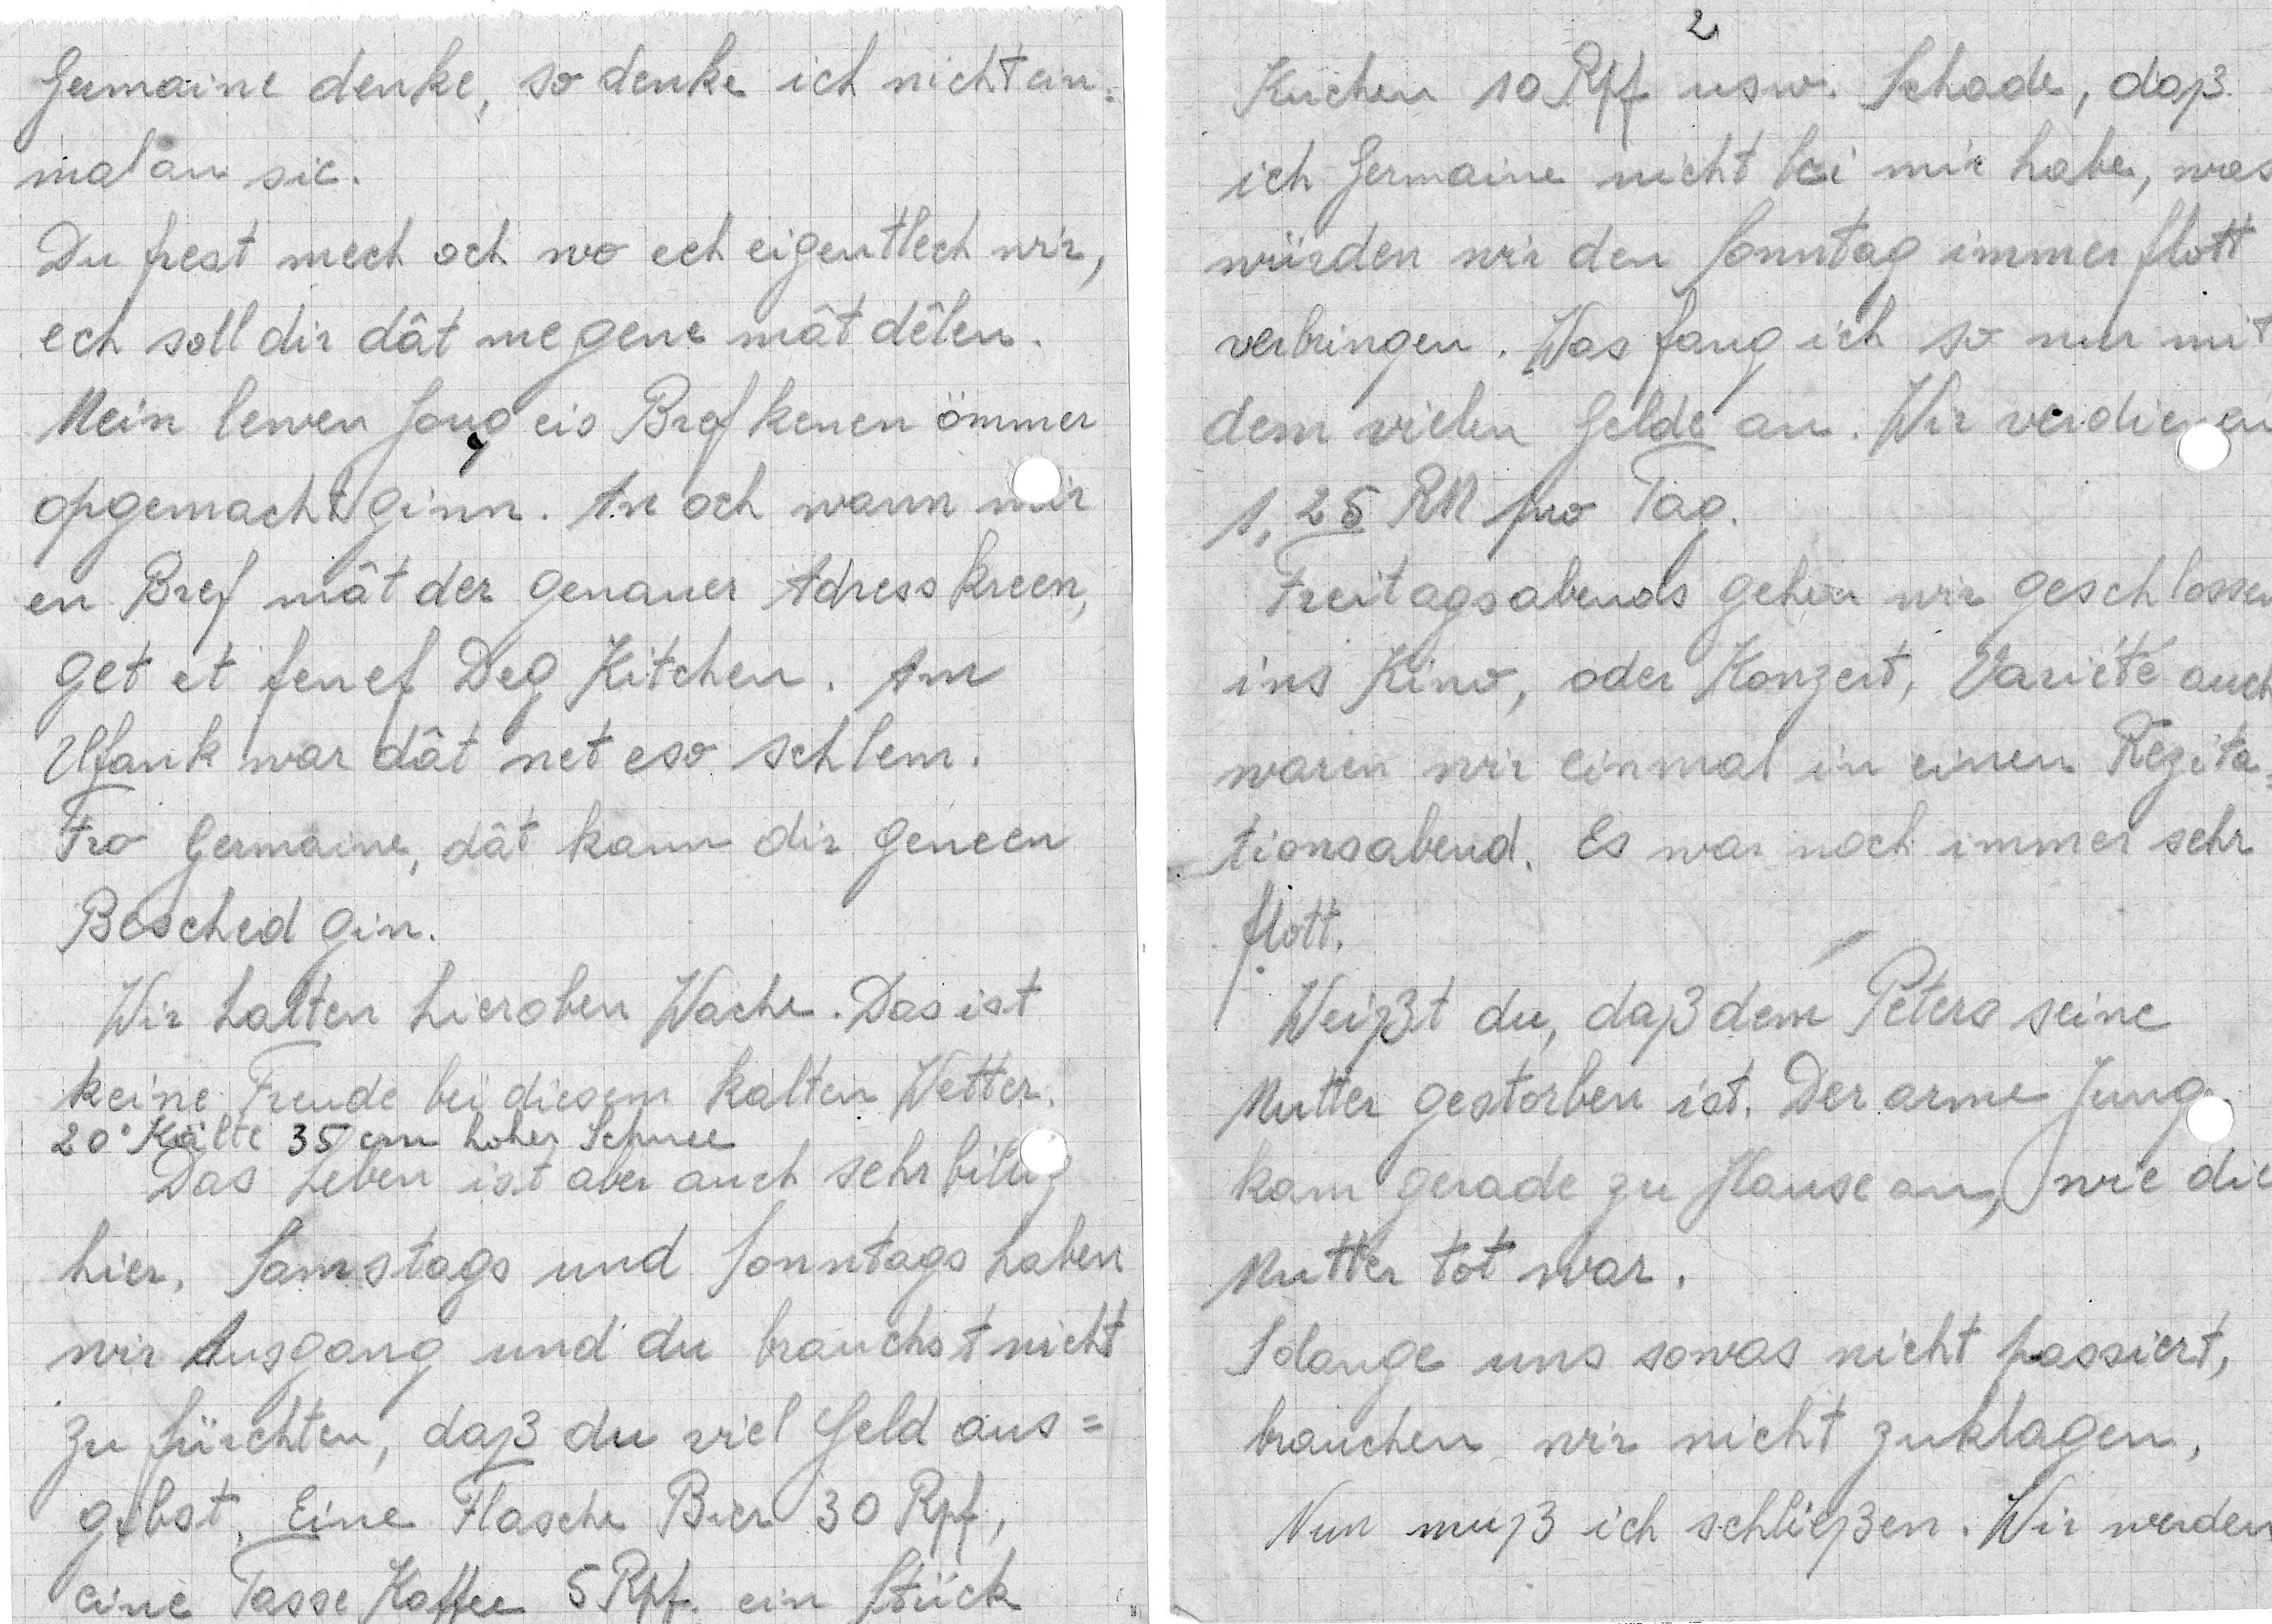 Germaine denke, so denke ich nicht ein=
mal an sie.
Du frest mech och wo ech eigentlech wir,
ech soll dir dât me gene mât dêlen.
Mein lewen Jong eis Bref kenen ömmer
opgemacht ginn. An och wann mir
en Bref mât der genauer Adress kreen,
get et fenef Deg Kitchen. Am
Ufank war dât net eso schlem.
Fro Germaine, dât kann dir geneen
Besched gin.
Wir halten hieroben Wache. Das ist
keine Freude bei diesem kalten Wetter.
20° Kälte 35 cm hoher Schnee
Das Leben ist aber auch sehr billig
hier. Samstags und Sonntags haben
wir Ausgang und du brauchst nicht
zu fürchten, daß du viel Geld aus=
gibst. Eine Flasche Bier 30 Rpf,
eine Tasse Kaffee 5 Rpf. ein Stück
2
Kuchen 10 Rpf usw. Schade, daß
ich Germaine nicht bei mir habe, was
würden wir den Sonntag immer flott
verbringen. Was fang ich so nur mit
dem vielen Gelde an. Wir verdienen
1,25 RM pro Tag.
Freitagsabends gehen wir geschlossen
ins Kino, oder Konzert, Variété auch
waren wir einmal in einen Rezita=
tionsabend. Es war noch immer sehr
flott.
Weißt du, daß dem Peters seine
Mutter gestorben ist. Der arme Junge
kam gerade zu Hause an, wie die
Mutter tot war.
Solange uns sowas nicht passiert,
brauchen wir nicht zuklagen.
Nun muß ich schließen. Wir werden